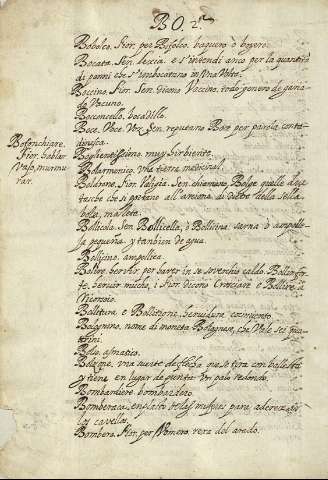 BO. 2º
Bobolco. Fior. per Bifolco. baquero ò boyero.
Bocata. Sen. Lexia. e s'intendi anco per la quantità
di panni che s'imbocatano in una Volta.
Boccino. Fior. Sen. dicono Vaccino, todo genero de gana-
do Vacuno.
Bocconcello, bocadillo.
Boce. Voce. Vox. Sen. reputano Boce per parola conta-
dinesca.
Bofonchiare.
Fior. hablar
baxo, murmu
rar.
Boglientissimo. muy hirbiente.
Bolarmenico. una tierra medicinal.
Boldrone, Fior. Valigia. Sen. chiamano Bolge quelle due
tasche che si portano all'arcione di dietro della Sella
bolsa, malleta.
Bollicola. Sen. Bollicella, ò Bollicina. sarna ò ampolle-
ja pequeña y tambien de agua.
Bollicino. ampollica.
Bollire. hervir per haver in se soverchio caldo. Bollor for-
te, hervir mucho, i Fior. dicono Crosciare e Bollire à
ricorsoio.
Bollitura, e Bollitione, hervidura, cocimiento.
Bolognino, nome di moneta Bolognese, che Vale sei quat
trini.
Bolso. asmatico.
Bolzone, una suerte de flecha que se tira con ballesta
y tiene en lugar de punta un palo redondo.
Bombardiere. bombardero.
Bomberaca, emplasto de las mugeres para aderezarse
los cavellos.
Bombero. Fior. per Vomero. rexa del arado.